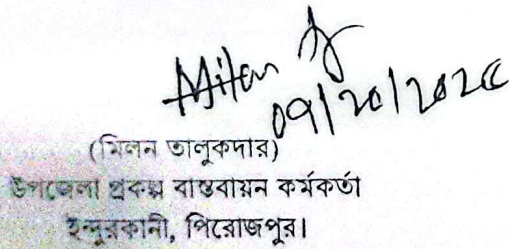 Milon
(মিলন তালুকদার)
উপজেলা প্রকল্প বাস্তবায়ন কর্মকর্তা
ইন্দুরকানী, পিরোজপুর।